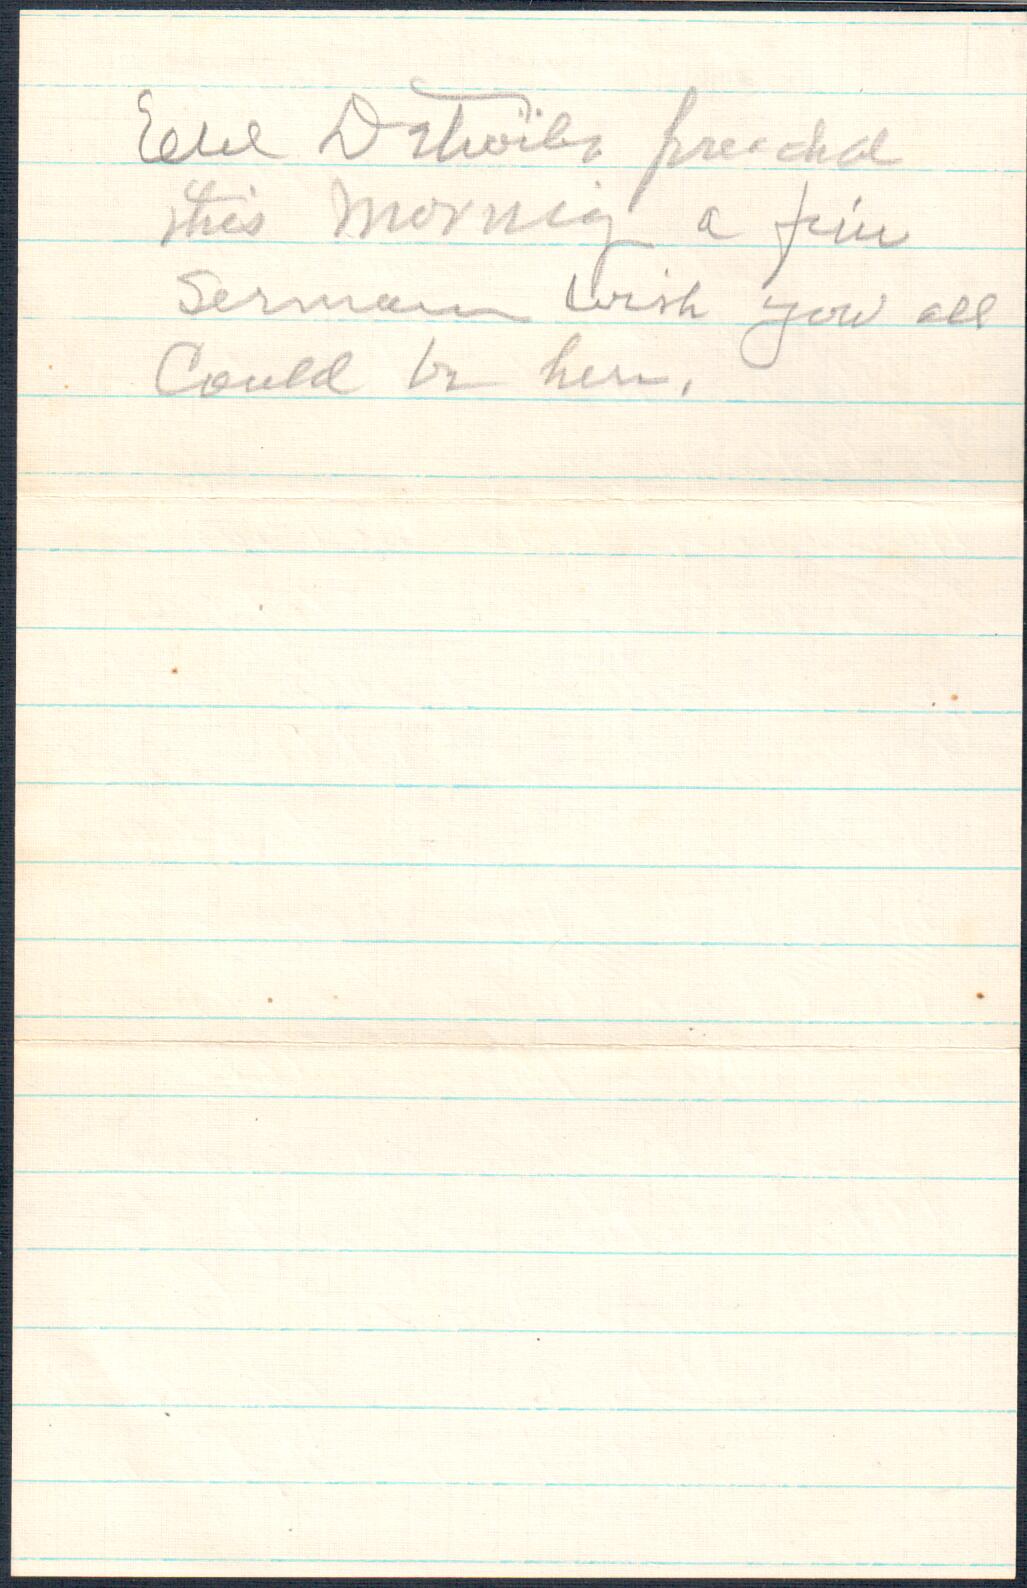 Eld Detwiler preached
this Morning a fine
Sermon wish you all
Could be here.